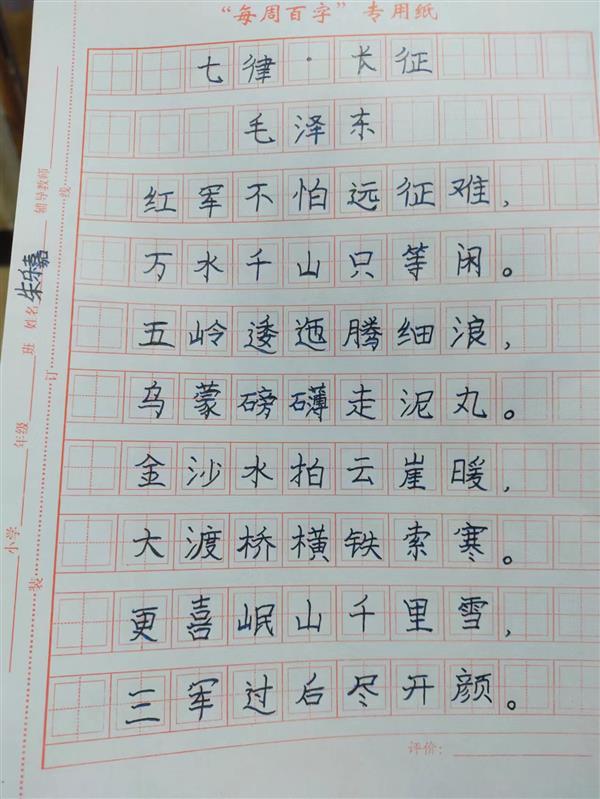 “每周百字”专用纸
七律·长征
毛泽东
红军不怕远征难，
万水千山只等闲。
五岭逶迤腾细浪，
乌蒙磅礴走泥丸。
金沙水拍云崖暖，
大渡桥横铁索寒。
更喜岷山千里雪，
三军过后尽开颜。
评价：
小学 年级 班 姓名 朱乐嘉 辅导教师
装 订 线